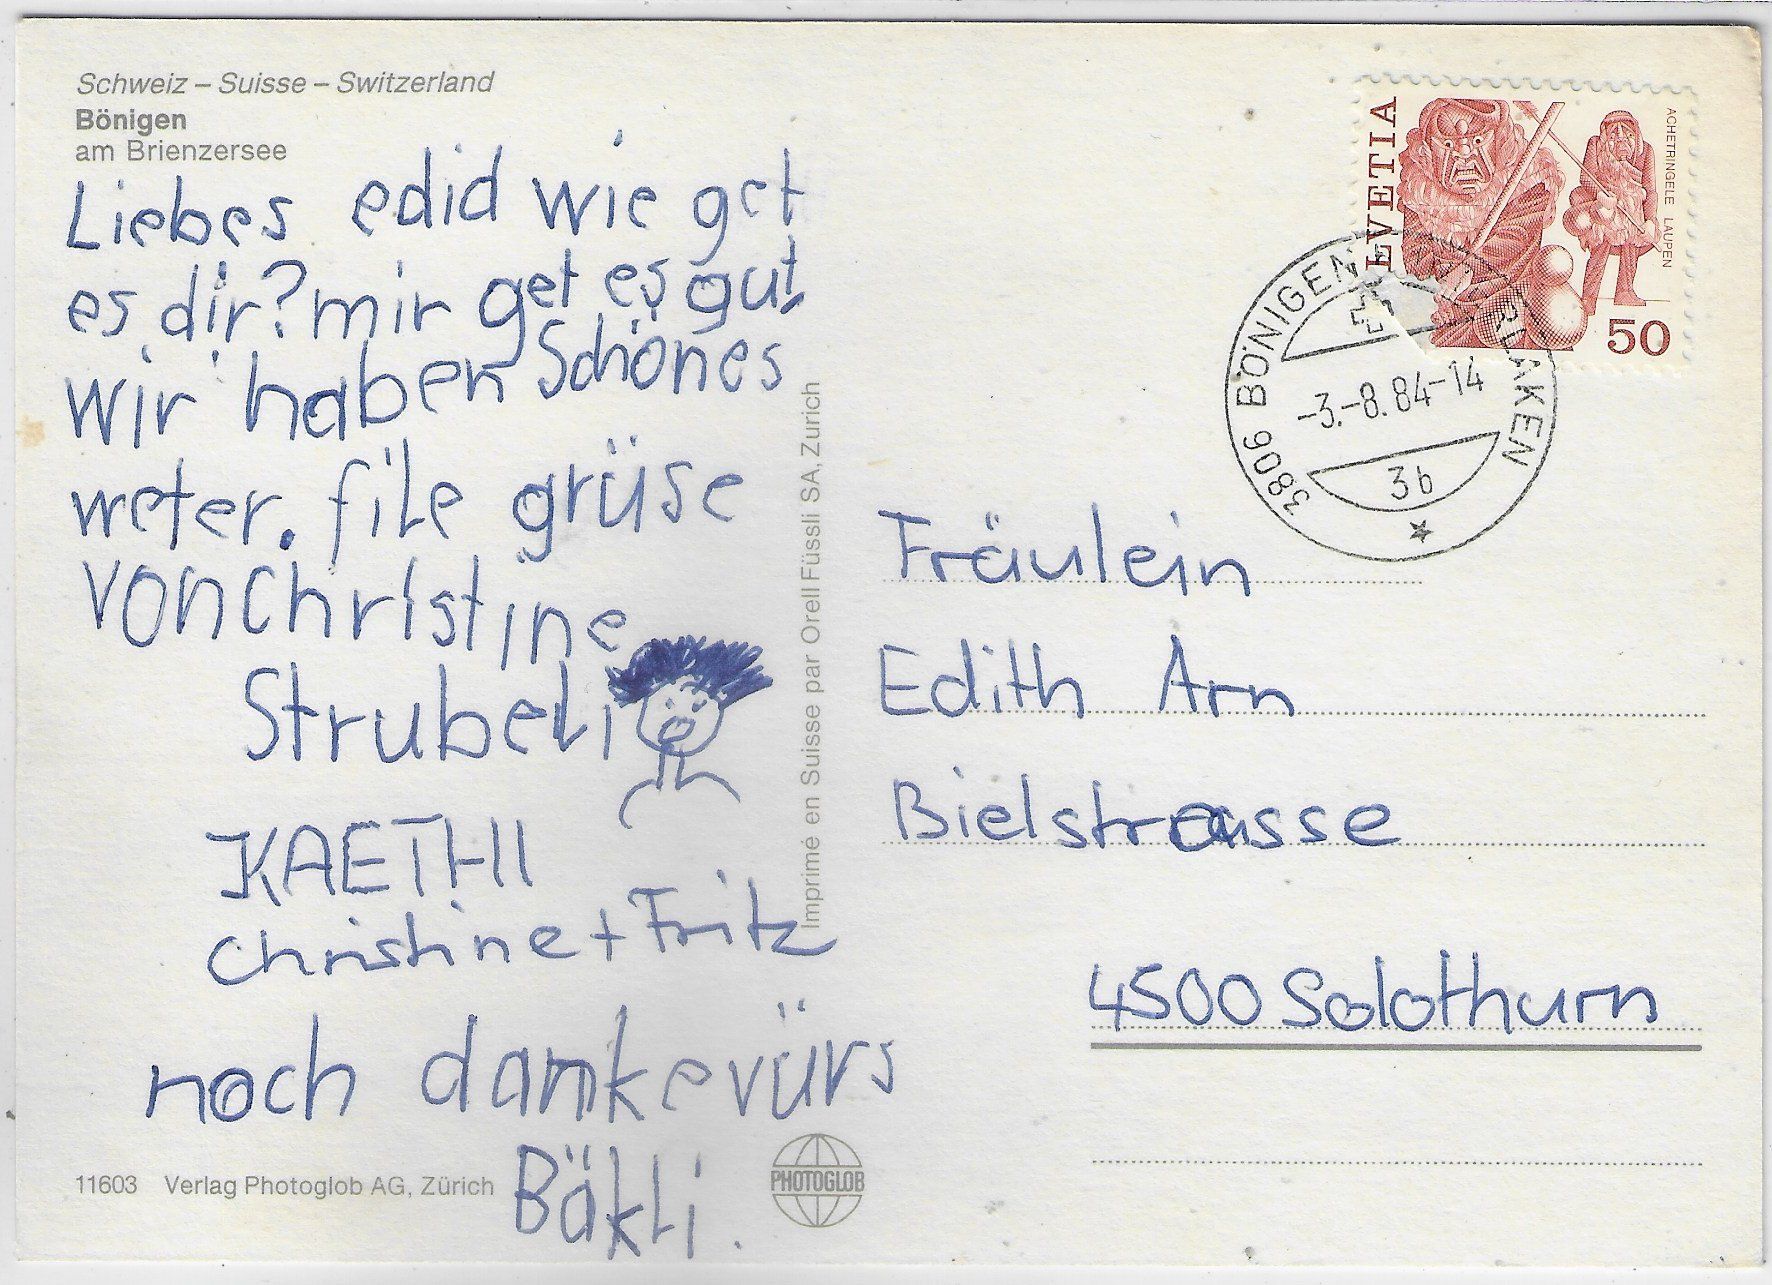 Schweiz – Suisse – Switzerland
Bönigen
am Brienzersee
Liebes edid wie get
es dir? mir get es gut
wir haben Schönes
weter. file grüse
von Christine
Strubeli
KAETHI
Christine + Fritz
noch danke vürs
Bäkli.
11603 Verlag Photoglob AG, Zürich
PHOTOGLOB
Imprimé en Suisse par Orell Füssli SA, Zurich
ELVETIA
ACHETRINGELE LAUPEN
50
3806 BÖNIGEN
-3.-8.84-14
3b
Fräulein
Edith Arn
Bielstrasse
4500 Solothurn